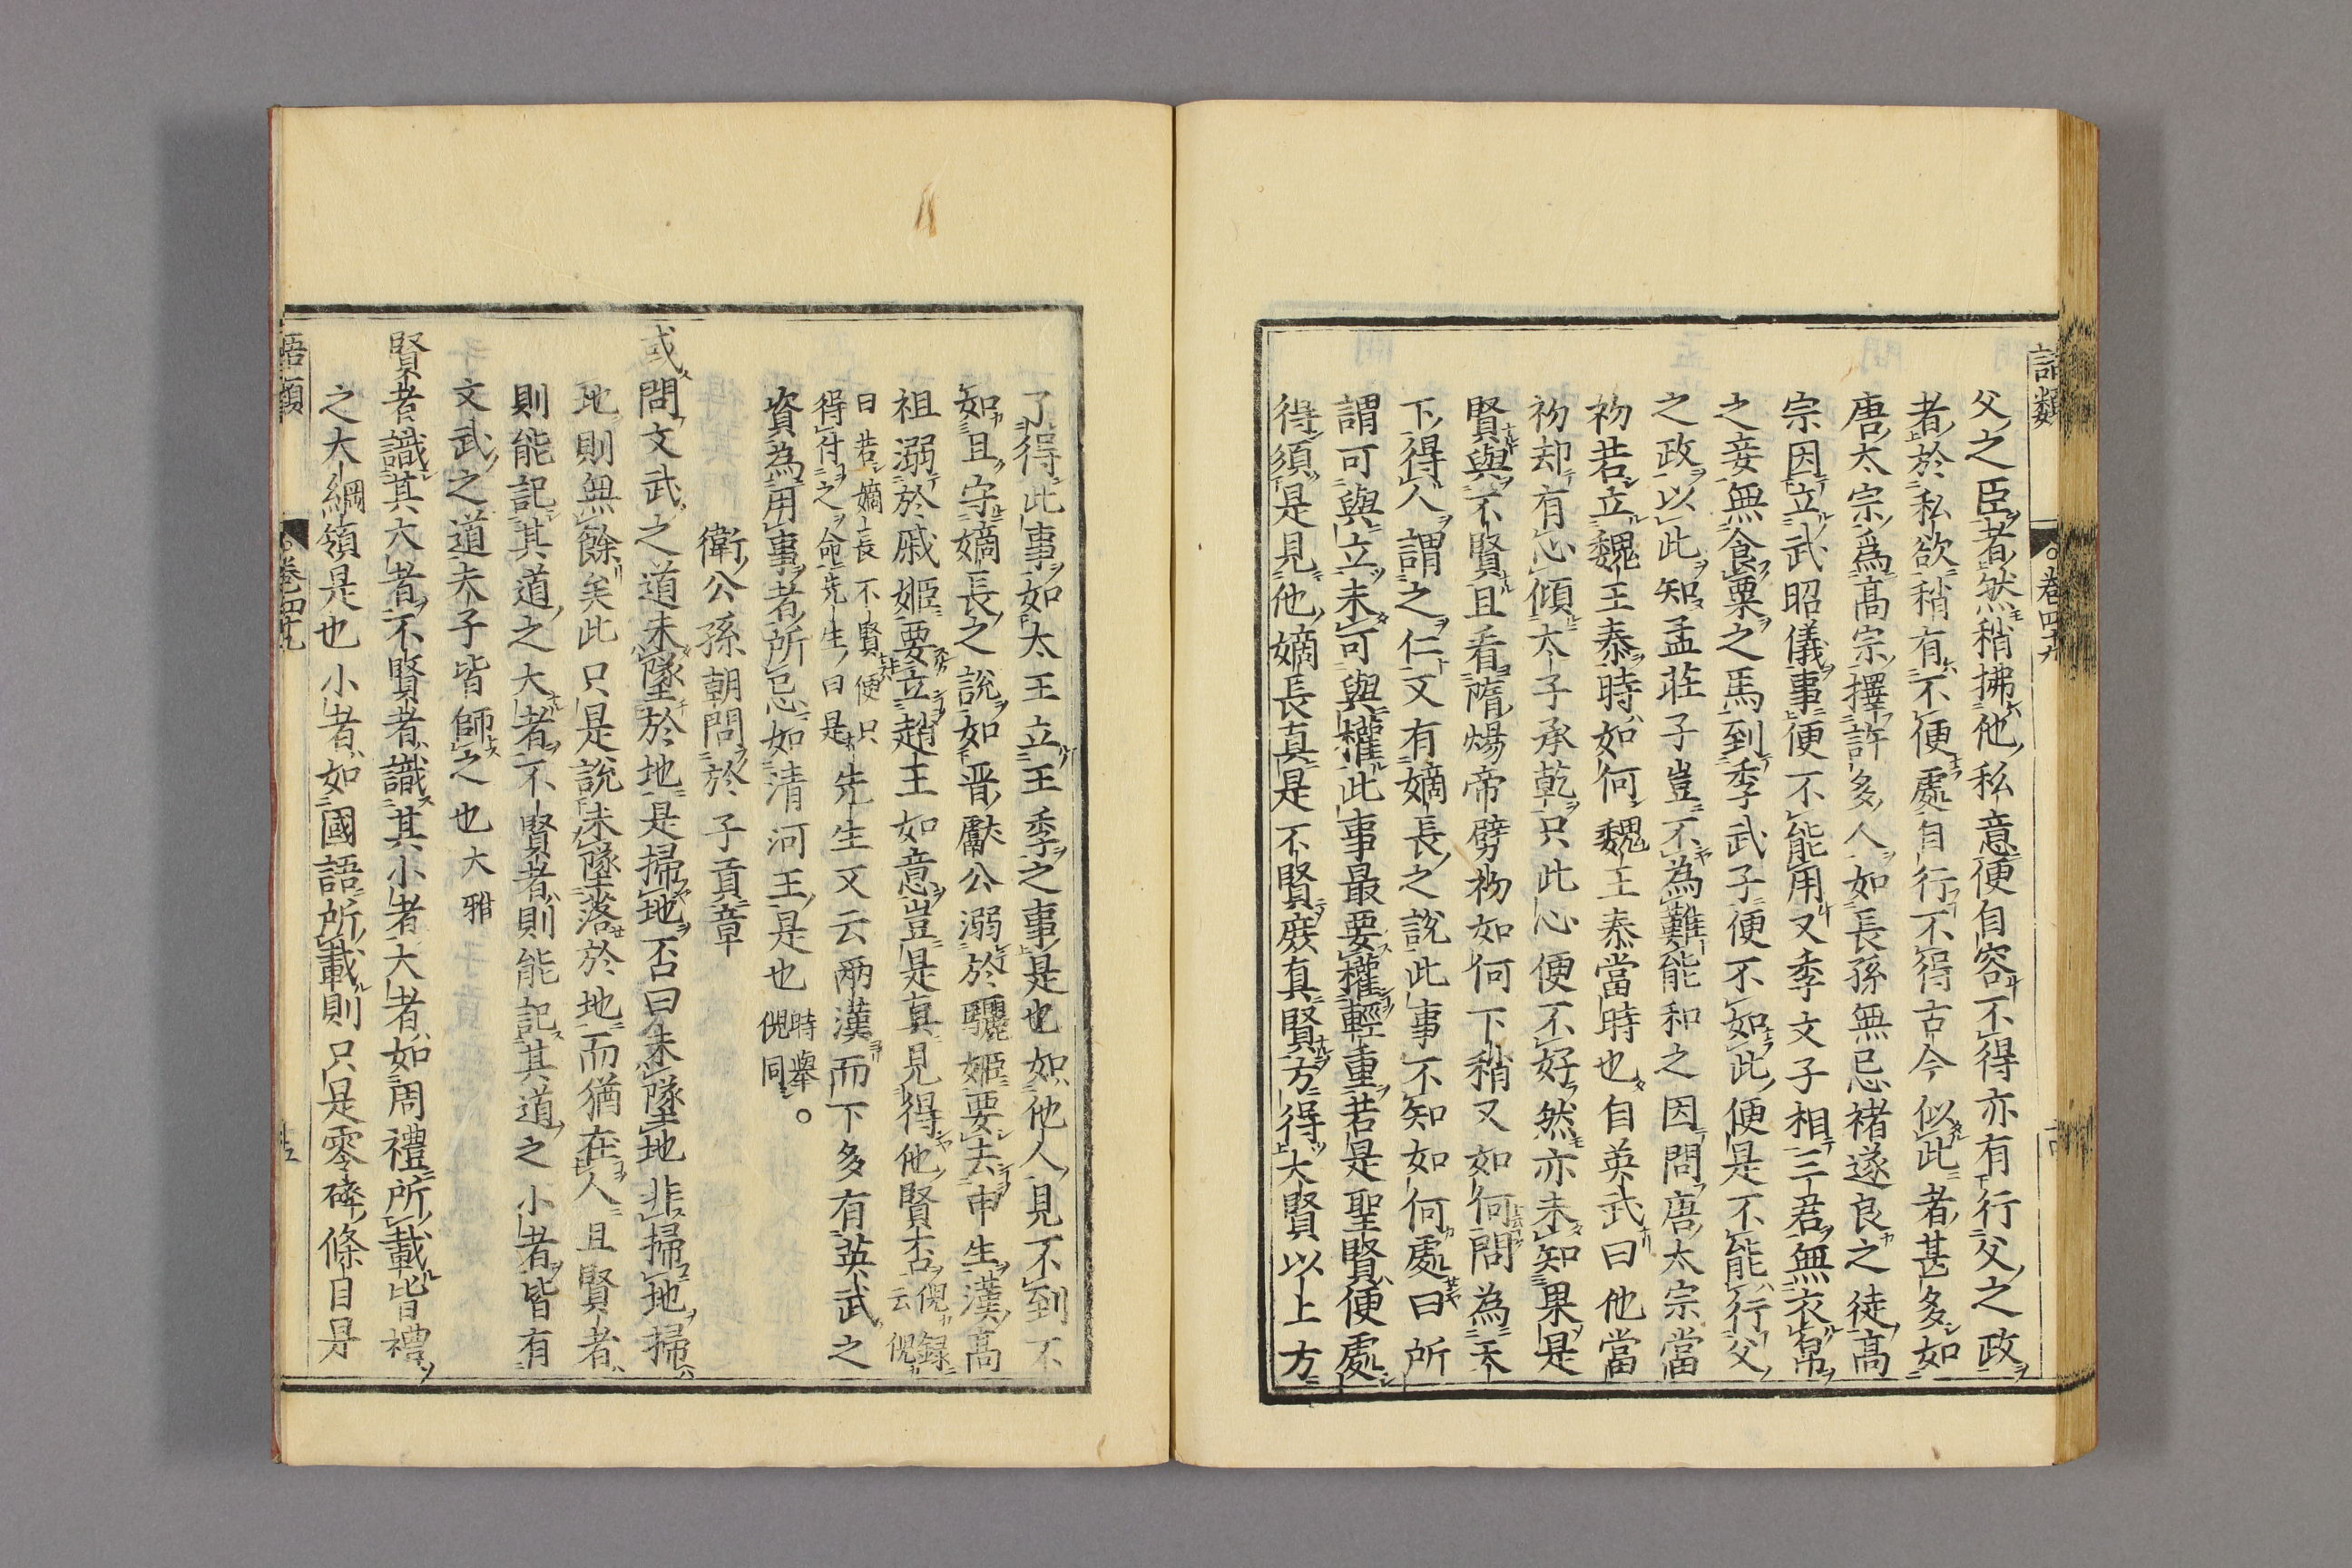 語類
卷四十九
父之臣者然稍拂他私意便自容不得亦有行父之政
者於私欲稍有不便處自行不得古今似此者甚多如
唐太宗爲高宗擇許多人如長孫無忌褚遂良之徒高
宗因立武昭儀事便不能用又季文子相三君無衣帛
之妾無食粟之馬到季武子便不如此便是不能行父
之政以此知孟莊子豈不為難能和之因問唐太宗當
初若立魏王泰時如何魏王泰當時也自英武曰他當
初却有心傾太子承乾只此心便不好然亦未知果是
賢與不賢且看隋煬帝劈初如何下稍又如何問為天
下得人謂之仁又有嫡長之說此事不知如何處曰所
謂可與立未可與權此事最要權輕重若是聖賢便處
得須是見他嫡長真是不賢庶真賢方得大賢以上方
了得此事如太王立王季之事是也如他人見不到不
如且守嫡長之說如晋獻公溺於驪姬要去申生漢高
祖溺於戚姬要立趙王如意豈是真見得他賢否倪録云倪
曰若嫡長不賢便只
得付之命先生曰是先生又云兩漢而下多有英武之
資為用事者所忌如清河王是也時舉倪同。
衛公孫朝問於子貢章
或問文武之道未墜於地是掃地否曰未墜地非掃地掃
地則無餘矣此只是說未墜落於地而猶在人且賢者
則能記其道之大者不賢者則能記其道之小者皆有
文武之道夫子皆師之也大雅
賢者識其大者不賢者識其小者大者如周禮所載皆禮
之大綱領是也小者如國語所載則只是零碎條目是
語類
卷四十九